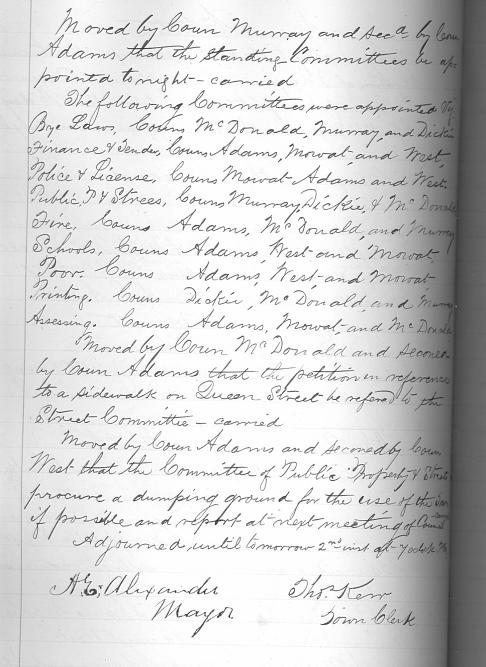 Moved by Coun Murray and secd by Coun
Adams that the standing Committees be ap-
pointed to night - carried
The following Committees were appointed Viz
Bye Laws, Couns McDonald, Murray, and Dickie
Finance & Tender, Couns Adams, Mowat and West,
Police & License, Couns Mowat Adams and West
Public P & Strees, Couns Murray, Dickie, & McDonald
Fire, Couns Adams, McDonald, and Murray
Schools, Couns Adams, West and Mowat
Poor. Couns Adams, West, and Mowat
Printing. Couns Dickie, McDonald, and Murray
Assessing. Couns Adams, Mowat and McDonald
Moved by Coun McDonald and seconed
by Coun Adams that the petition in reference
to a sidewalk on Queen Street be refered to the
Street Committie - carried
Moved by Coun Adams and seconed by Coun
West that the Committee of Public Property & Streets
procure a dumping ground for the use of the Town
if possible and report at next meeting of Council
Adjourned until tomorrow 2nd inst at 7 oclock
Alexander Thos. Kerr
Mayor Town Clerk